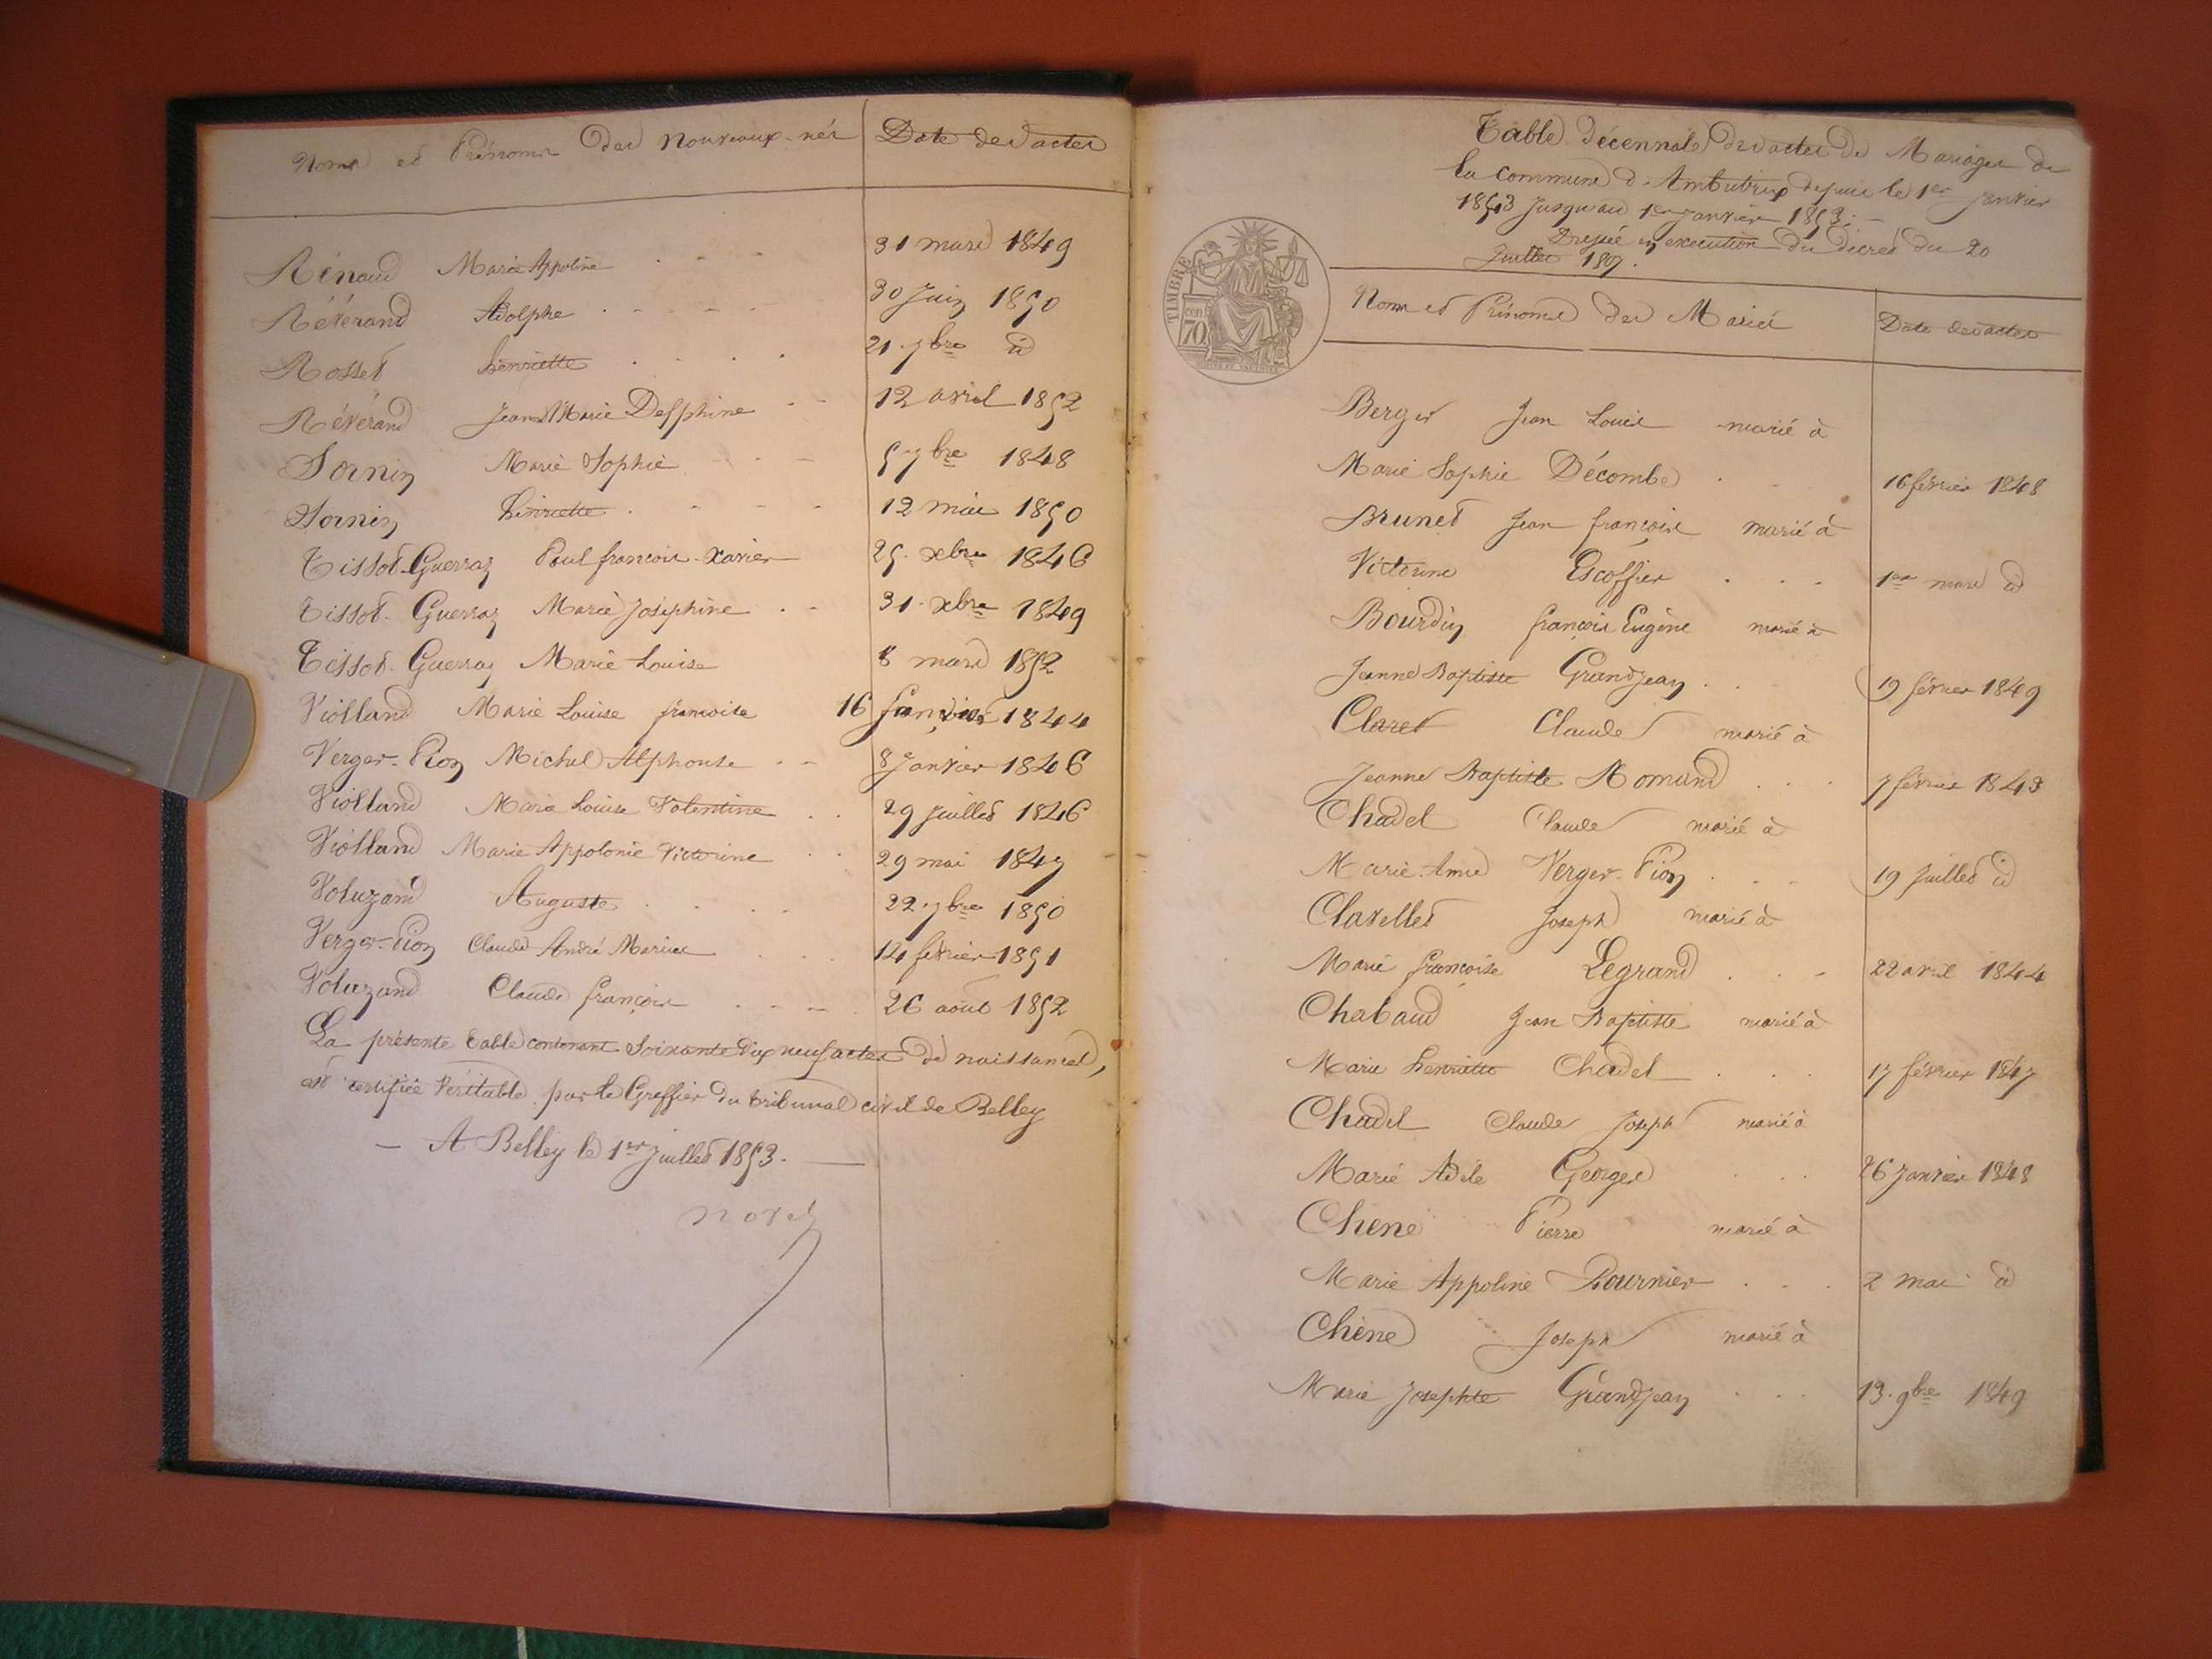 Noms et Prénoms des Nouveaux-nés Date des actes
Rénaud Marie Appoline 31 mars 1849
Révérand Adolphe 30 Juin 1850
Rosset henriette 21 7bre id
Révérand Jeanne Marie Delphine 12 avril 1852
Sornin Marie Sophie 5 7bre 1848
Sornin henriette 12 mai 1850
Tissot-Guerraz Paul françois-Xavier 25 xbre 1846
Tissot-Guerraz Marie Joséphine 31 xbre 1849
Tissot-Guerraz Marie Louise 8 mars 1852
Violland Marie Louise françoise 16 Janvier 1844
Verger-Pion Michel Alphonse 8 Janvier 1846
Violland Marie Louise Valentine 29 Juillet 1846
Violland Marie Appolonie Victorine 29 mai 1847
Voluzand Auguste 22 7bre 1850
Verger-Pion Claude André Marius 14 février 1851
Voluzand Claude françois 26 août 1852
La présente table contenant soixante dix neuf actes de naissances,
est certifiée Véritable par le Greffier du tribunal civil de Belley
— A Belley le 1er Juillet 1853. —
Table décennale des actes de Mariages de
la commune d'Ambutrix depuis le 1er Janvier
1843 Jusqu'au 1er Janvier 1853. —
Dressée en execution du décret du 20
Juillet 1807.
TIMBRE
70
Noms et Prénoms des Mariés Date des actes
Berger Jean Louis marié à
Marie Sophie Décombe 16 février 1848
Brunet Jean françois marié à
Victorine Escoffier 1er mars id
Bourdin françois Eugène marié à
Jeanne Baptiste Grandjean 19 février 1849
Claret Claude marié à
Jeanne Baptiste Romand 7 février 1843
Chadel Claude marié à
Marie-Anne Verger-Pion 19 Juillet id
Clavellet Joseph marié à
Marie françoise Legrand 22 avril 1844
Chabaud Jean Baptiste marié à
Marie henriette Chadel 17 février 1847
Chadel Claude Joseph marié à
Marie Adèle Georges 26 Janvier 1848
Chêne Pierre marié à
Marie Appoline Fournier 2 mai id
Chêne Joseph marié à
Marie Josephte Grandjean 13 9bre 1849